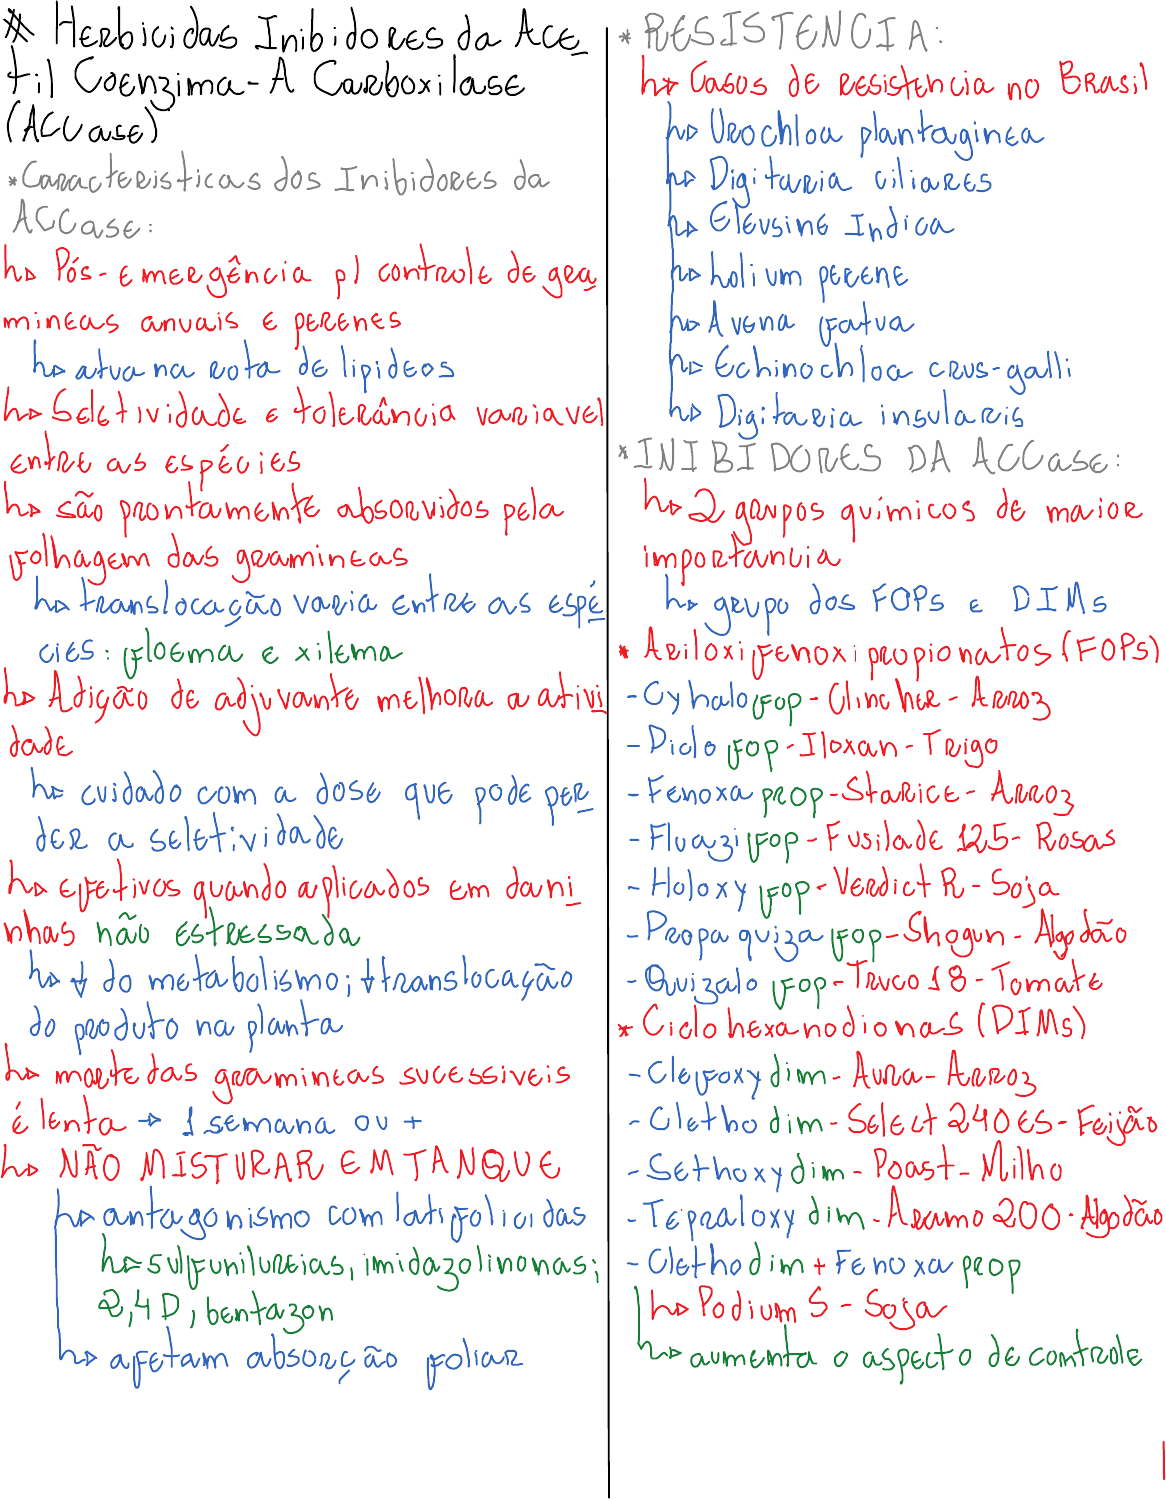 * Herbicidas Inibidores da Ace
til Coenzima-A Carboxilase
(ACCase)
*Caracteristicas dos Inibidores da
ACCase:
↳ Pós-Emergência p/ controle de gra
mineas anuais e perenes
↳ atua na rota de lipideos
↳ Seletividade e tolerância variavel
entre as espécies
↳ são prontamente absorvidos pela
folhagem das gramineas
↳ translocação varia entre as espé
cies: floema e xilema
↳ Adição de adjuvante melhora a ativi
dade
↳ cuidado com a dose que pode per
der a seletividade
↳ efetivos quando aplicados em dani
nhas não estressada
↳ ↓ do metabolismo; ↓ translocação
do produto na planta
↳ morte das gramineas sucessiveis
é lenta → 1 semana ou +
↳ NÃO MISTURAR EM TANQUE
↳ antagonismo com latifolicidas
↳ sulfunilureias, imidazolinonas;
2,4 D, bentazon
↳ afetam absorção foliar
* RESISTENCIA:
↳ Casos de resistencia no Brasil
↳ Urochloa plantaginea
↳ Digitaria ciliares
↳ Eleusine Indica
↳ Lolium perene
↳ Avena fatua
↳ Echinochloa crus-galli
↳ Digitaria insularis
*INIBIDORES DA ACCase:
↳ 2 grupos químicos de maior
importancia
↳ grupo dos FOPs e DIMs
* Ariloxifenoxipropionatos (FOPs)
- Cyhalofop - Clincher - Arroz
- Diclofop - Iloxan - Trigo
- Fenoxaprop - Starice - Arroz
- Fluazifop - Fusilade 125 - Rosas
- Haloxyfop - Verdict R - Soja
- Propaquizafop - Shogun - Algodão
- Quizalofop - Truco 18 - Tomate
* Ciclohexanodionas (DIMs)
- Clefoxydim - Aura - Arroz
- Clethodim - Select 240 ES - Feijão
- Sethoxydim - Poast - Milho
- Tepraloxydim - Aramo 200 - Algodão
- Clethodim + Fenoxaprop
↳ Podium S - Soja
↳ aumenta o aspecto de controle